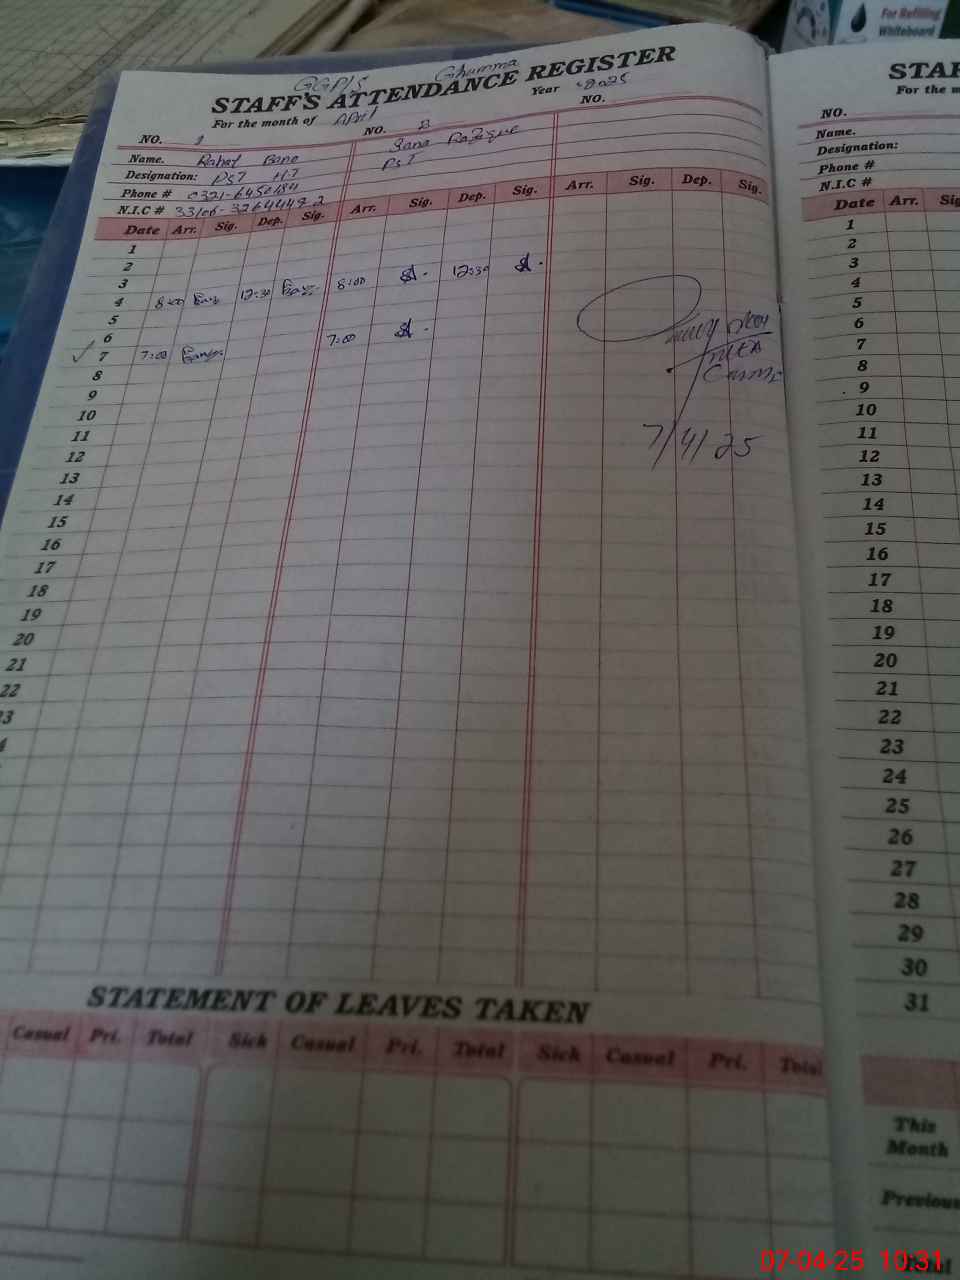 For Refilling
Whiteboard
GGP/S Ghumma
STAFF'S ATTENDANCE REGISTER
For the month of April Year 2025
NO. 1 NO. 2 NO.
Name. Rahat Bano Sana
Designation: PST H.T PST
Phone # 0321-6450484
N.I.C # 33106-3264448 2
Date Arr. Sig. Dep. Sig. Arr. Sig. Dep. Sig. Arr. Sig. Dep. Sig.
1
2
3
4 8:00 12:30 8:00 12:30
5
6
7 7:00 7:00
8
9
10
11
12
13
14
15
16
17
18
19
20
21
22
23
7/4/25
STATEMENT OF LEAVES TAKEN
Casual Pri. Total Sick Casual Pri. Total Sick Casual Pri. Total
STAF
For the m
NO.
Name.
Designation:
Phone #
N.I.C #
Date Arr. Sig
1
2
3
4
5
6
7
8
9
10
11
12
13
14
15
16
17
18
19
20
21
22
23
24
25
26
27
28
29
30
31
This
Month
Previous
07-04-25 10:31